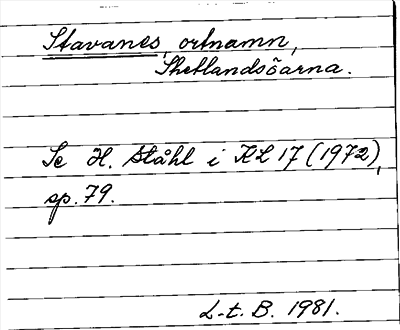 Stavanes, ortnamn,
Shetlandsöarna.
Se H. Ståhl i KL 17 (1972),
sp. 79.
L-t. B. 1981.